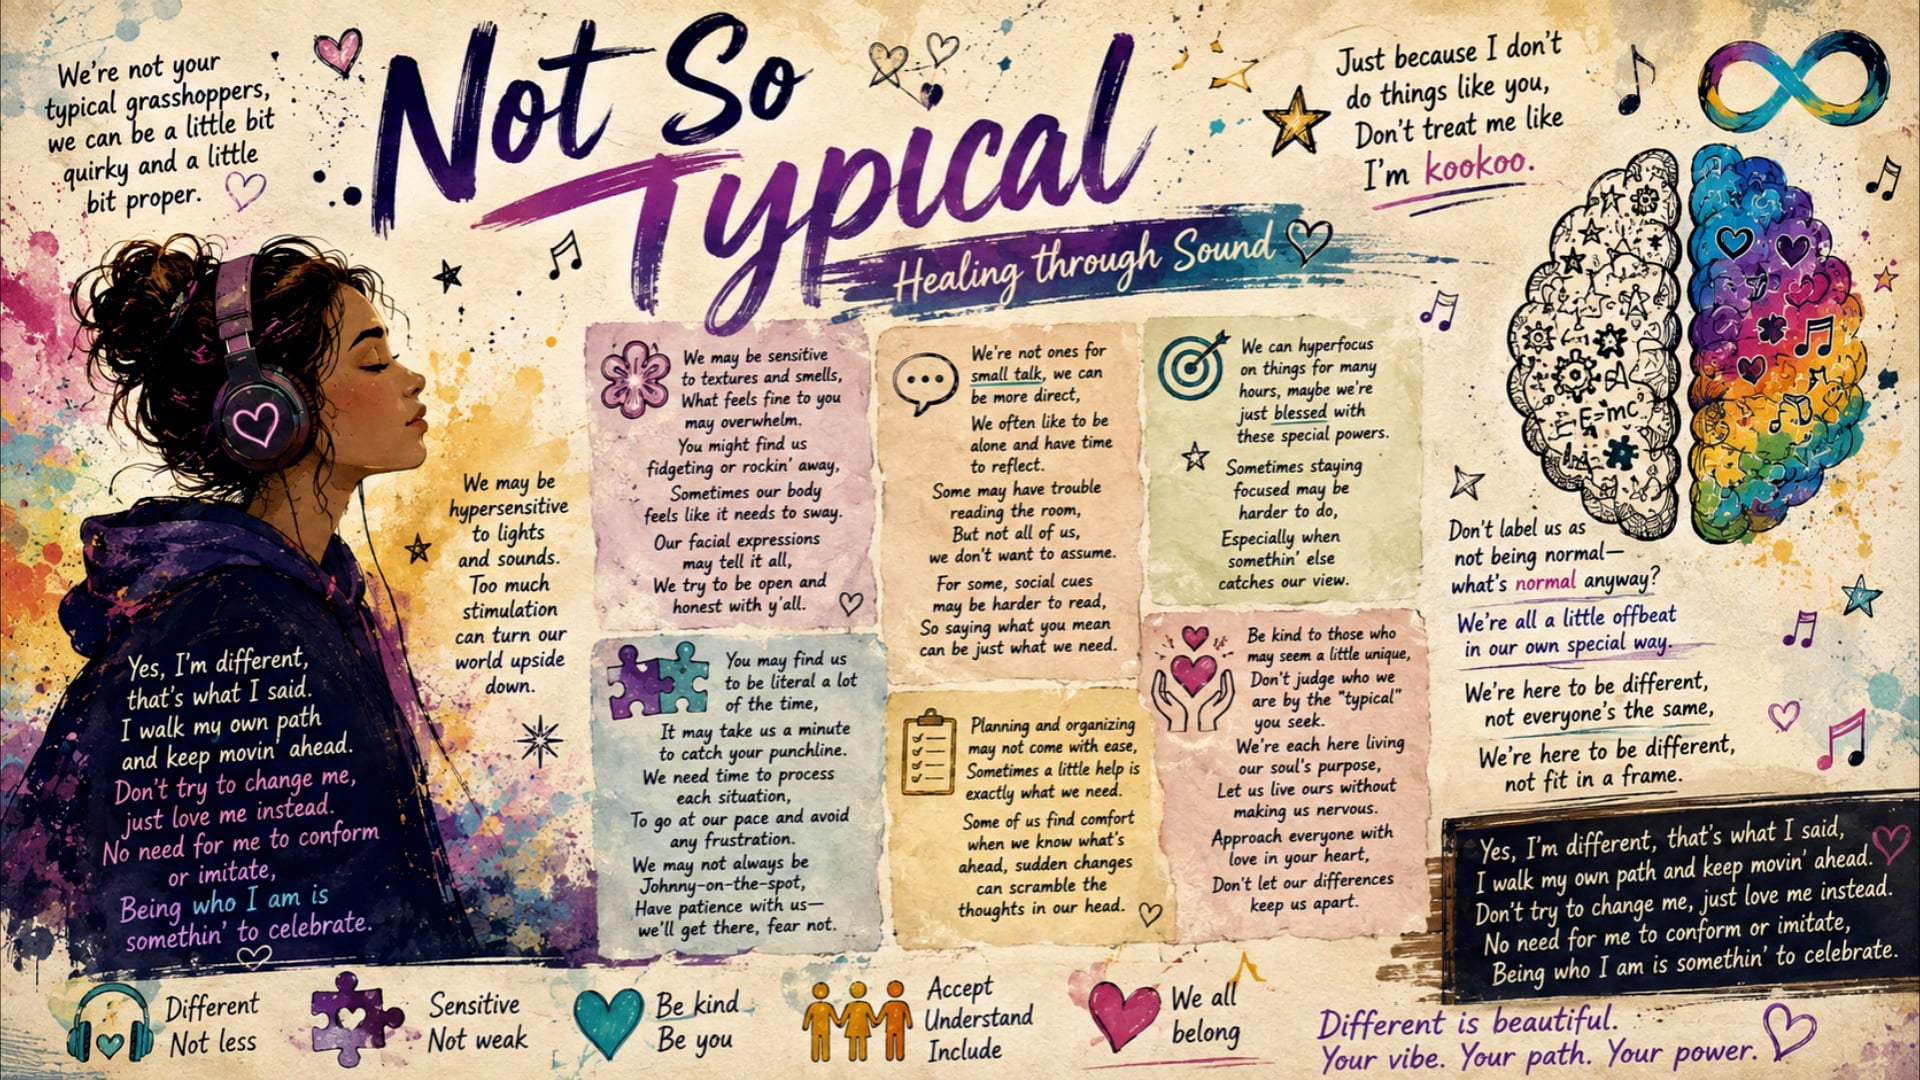 We're not your
typical grasshoppers,
we can be a little bit
quirky and a little
bit proper.
Not So
Typical
Healing through Sound
Just because I don't
do things like you,
Don't treat me like
I'm kookoo.
We may be
hypersensitive
to lights
and sounds.
Too much
stimulation
can turn our
world upside
down.
Yes, I'm different,
that's what I said.
I walk my own path
and keep movin' ahead.
Don't try to change me,
just love me instead.
No need for me to conform
or imitate,
Being who I am is
somethin' to celebrate.
We may be sensitive
to textures and smells,
What feels fine to you
may overwhelm.
You might find us
fidgeting or rockin' away,
Sometimes our body
feels like it needs to sway.
Our facial expressions
may tell it all,
We try to be open and
honest with y'all.
You may find us
to be literal a lot
of the time,
It may take us a minute
to catch your punchline.
We need time to process
each situation,
To go at our pace and avoid
any frustration.
We may not always be
Johnny-on-the-spot,
Have patience with us—
we'll get there, fear not.
We're not ones for
small talk, we can
be more direct,
We often like to be
alone and have time
to reflect.
Some may have trouble
reading the room,
But not all of us,
we don't want to assume.
For some, social cues
may be harder to read,
So saying what you mean
can be just what we need.
Planning and organizing
may not come with ease,
Sometimes a little help is
exactly what we need.
Some of us find comfort
when we know what's
ahead, sudden changes
can scramble the
thoughts in our head.
We can hyperfocus
on things for many
hours, maybe we're
just blessed with
these special powers.
Sometimes staying
focused may be
harder to do,
Especially when
somethin' else
catches our view.
Be kind to those who
may seem a little unique,
Don't judge who we
are by the "typical"
you seek.
We're each here living
our soul's purpose,
Let us live ours without
making us nervous.
Approach everyone with
love in your heart,
Don't let our differences
keep us apart.
E=mc
Don't label us as
not being normal—
what's normal anyway?
We're all a little offbeat
in our own special way.
We're here to be different,
not everyone's the same,
We're here to be different,
not fit in a frame.
Yes, I'm different, that's what I said,
I walk my own path and keep movin' ahead.
Don't try to change me, just love me instead.
No need for me to conform or imitate,
Being who I am is somethin' to celebrate.
Different
Not less
Sensitive
Not weak
Be kind
Be you
Accept
Understand
Include
We all
belong
Different is beautiful.
Your vibe. Your path. Your power.